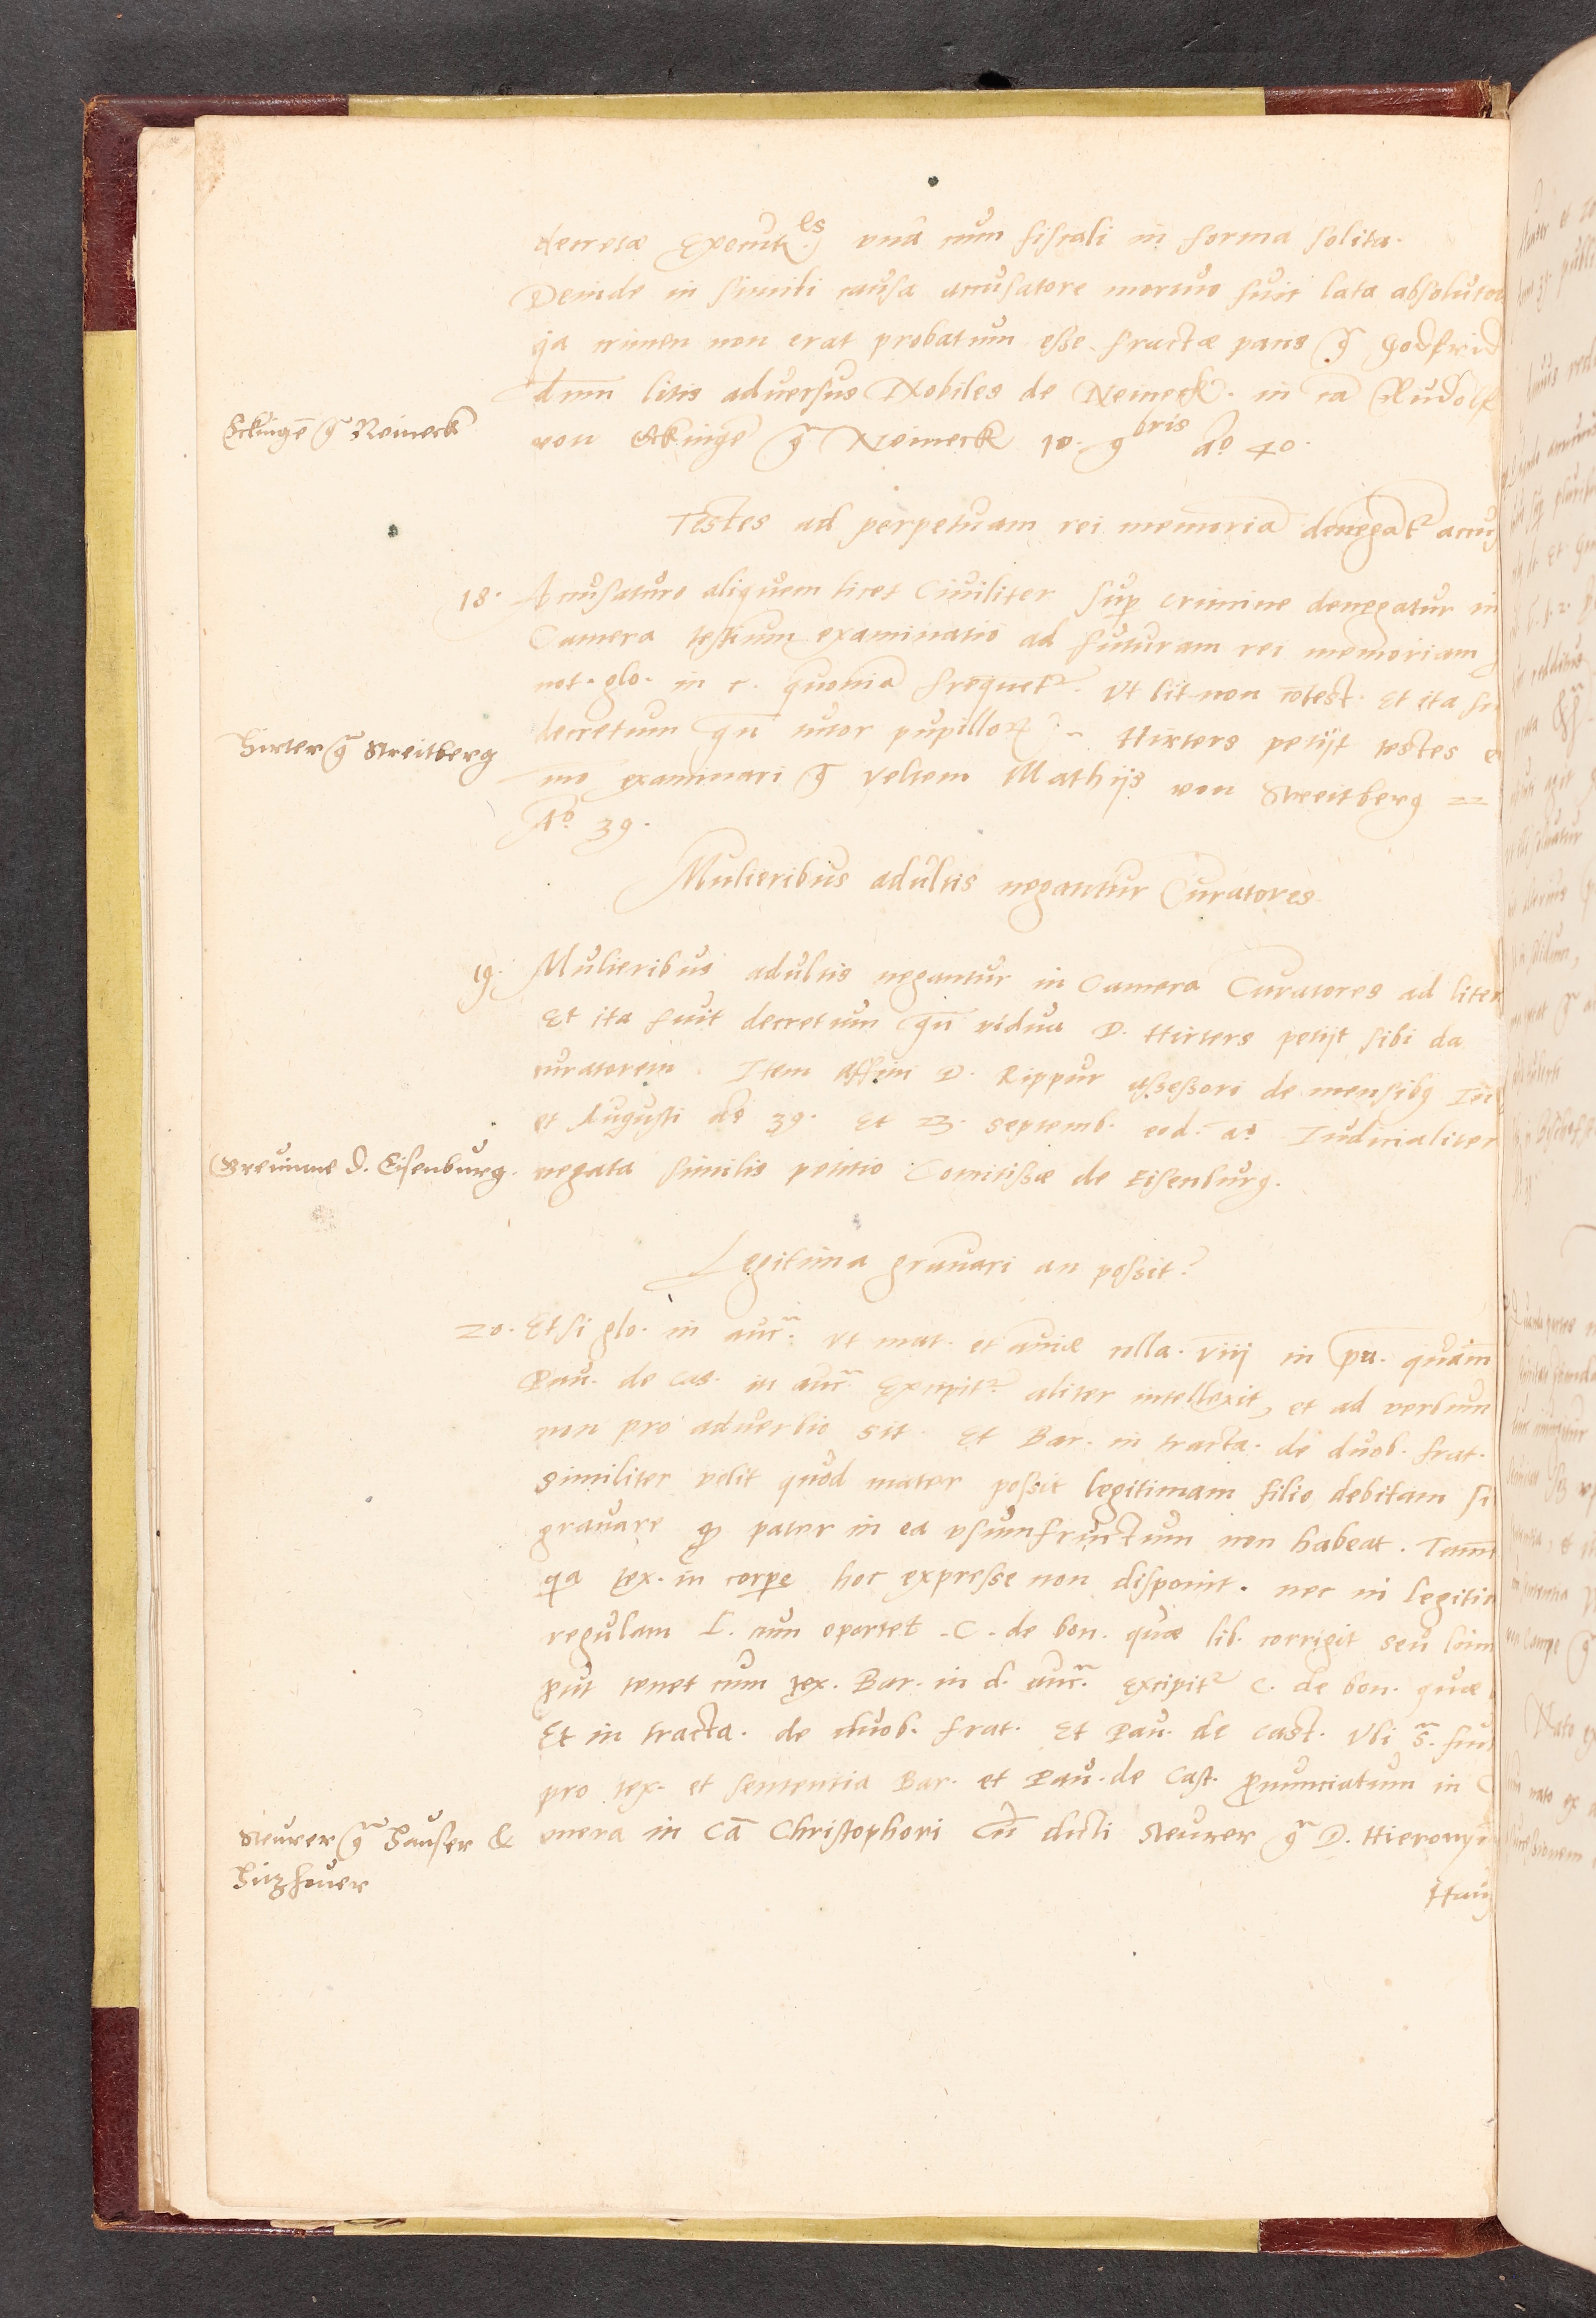 decretæ Execut.es vna cum fiscali in forma solita.
Deinde in simili causa accusatore mortuo fuit lata absolutor
qa crimen non erat probatum esse fractæ pacis g̃ Godfrid
dnm litis adversus Nobiles de Reineck. in cã Rudolf
Eckingē g̃ Reineck
von Eckingē g̃ Reineck 10. 9bris Ao 40.
Testes ad perpetuam rei memoriã denegãt² accus
18. Accusaturo aliquem licet Ciuiliter sup crimine denegatur in
Camera testium examinatio ad futuram rei memoriam
not. glo. in c. quoniã freqūet². Vt lit non cōtest. Et ita fu
Hirter g̃ Streitberg
decretum qn̄ tutor pupillorͫ Hirters petijt testes
mo examinari g̃ veltem Mathijs von Streitberg 22
Ao. 39.
Mulieribus adultis negantur Curatores
19. Mulieribus adultis negantur in Camera Curatores ad litem
Et ita fuit decretum qn̄ vidua D. Hirters petijt sibi da
curatorem. Item affini D. Rippur assessori de mensibg Iu
et Augusti ao 39. Et 23. septemb. eod. ao. Iudicialiter
Greuinne d. Eisenburg.
negata similis petitio Comitissæ de Eisenburg.
Legitima grauari an possit?
20. Etsi glo. in auc̃. vt mat. et auiæ colla. viij in pu. quam
Pau. de cas. in auc̃. Excipit². aliter intellexit, et ad verbum
non pro aduerbio sit. Et Bar. in tracta. de duob. frat.
similiter velit quod mater possit legitimam filio debitam si
grauare qƺ pater in ea vsumfructum non habeat. Tamen
qa tex. in corpe hoc expresse non disponit. nec in legitim
regulam L. cum oportet. C. de bon. quæ lib. corrigit seu lim
put tenet cum tex. Bar. in d. auc̃. Excipit² C. de bon. quæ
Et in tracta. de duob. frat. Et Pau. de Cast. Vbi s̃. fui
pro tex. et sententia Bar. et Pau. de Cast. pnunciatum in C
Steurer g̃ Hauser &
Hitzhouer
mera in Cã Christophori Cū dicti Steurer g̃ D. Hieronym
Haus